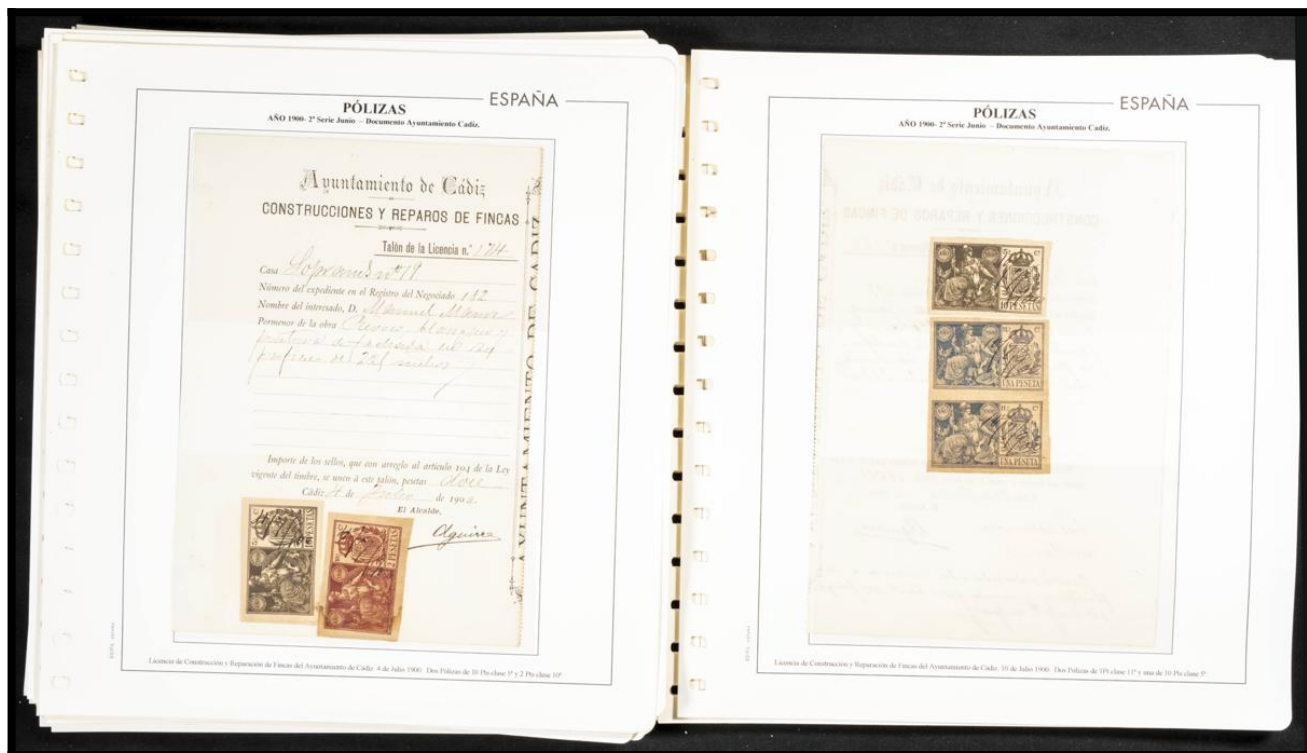 ESPAÑA
PÓLIZAS
AÑO 1900- 2ª Serie Junio – Documento Ayuntamiento Cadiz.
Ayuntamiento de Cádiz
CONSTRUCCIONES Y REPAROS DE FINCAS
Talón de la Licencia n.º 174
Casa Sopranis nº 19
Número del expediente en el Registro del Negociado 132
Nombre del interesado, D. Manuel
Pormenor de la obra
Importe de los sellos, que con arreglo al artículo 104 de la Ley
vigente del timbre, se unen á este talón, pesetas doce
Cádiz 4 de Julio de 190
El Alcalde,
Aguirre
AYUNTAMIENTO DE CADIZ
10 PESETAS
2 PESETAS
Licencia de Construcción y Reparación de Fincas del Ayuntamiento de Cádiz. 4 de Julio 1900. Dos Pólizas de 10 Pts clase 5ª y 2 Pts clase 10ª
ESPAÑA
PÓLIZAS
AÑO 1900- 2ª Serie Junio – Documento Ayuntamiento Cadiz.
10 PESETAS
UNA PESETA
UNA PESETA
Licencia de Construcción y Reparación de Fincas del Ayuntamiento de Cádiz. 10 de Julio 1900. Dos Pólizas de 1Pt clase 11ª y una de 10 Pts clase 5ª